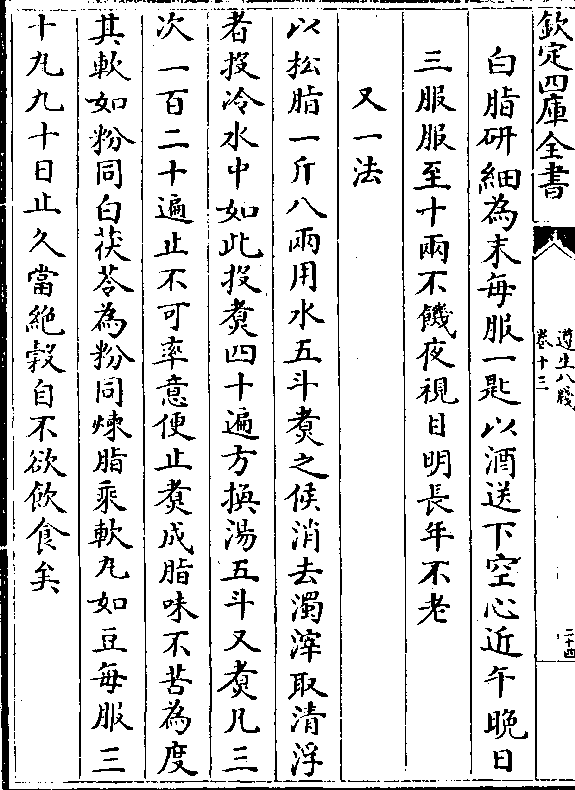 欽定四庫全書
遵生八牋
卷十三
二十四
白脂研細為末每服一匙以酒送下空心近午晚日
三服服至十兩不饑夜視目明長年不老
又一法
以松脂一斤八兩用水五斗煑之候消去濁滓取清浮
者投冷水中如此投煑四十遍方換湯五斗又煑凡三
次一百二十遍止不可率意便止煑成脂味不苦為度
其軟如粉同白茯苓為粉同煉脂乘軟丸如豆每服三
十丸九十日止久當絶穀自不欲飲食矣